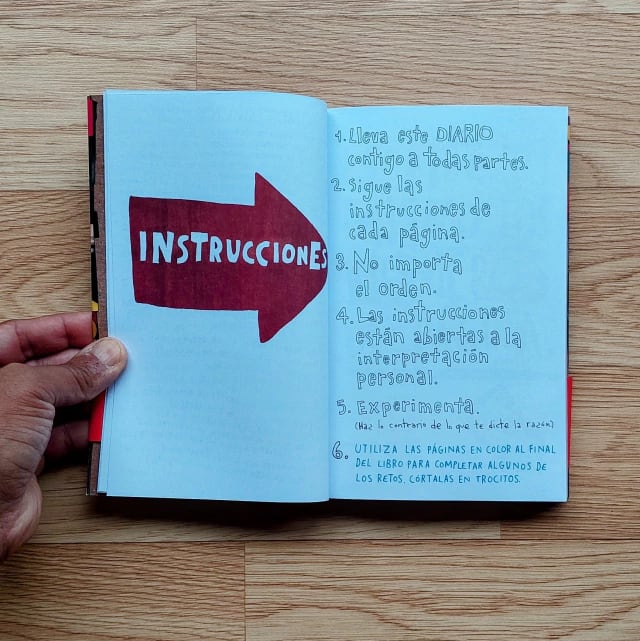 INSTRUCCIONES
1. Lleva este DIARIO
contigo a todas partes.
2. Sigue las
instrucciones de
cada página.
3. No importa
el orden.
4. Las instrucciones
están abiertas a la
interpretación
personal.
5. Experimenta.
(Haz lo contrario de lo que te dicte la razón)
6. UTILIZA LAS PÁGINAS EN COLOR AL FINAL
DEL LIBRO PARA COMPLETAR ALGUNOS DE
LOS RETOS. CÓRTALAS EN TROCITOS.